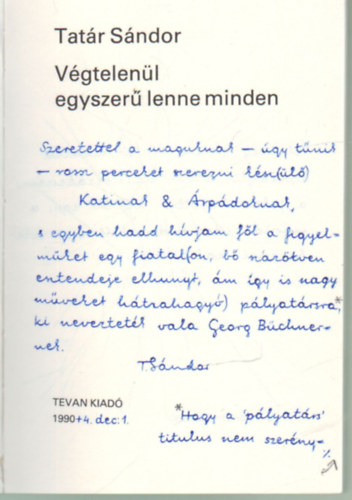 Tatár Sándor
Végtelenül
egyszerű lenne minden
Szeretettel a maguknak – úgy tűnik
– rossz perceket szerezni kész(ülő)
Katinak & Árpádoknak,
s egyben hadd hívjam föl a figyel-
müket egy fiatal(on, bő százötven
esztendeje elhunyt, ám így is nagy
műveket hátrahagyó) pályatársra*,
ki nevezteték vala Georg Büchner-
nek.
TSándor
TEVAN KIADÓ
1990 + 4. dec. 1.
*Hogy a 'pályatárs'
titulus nem szerény-
%